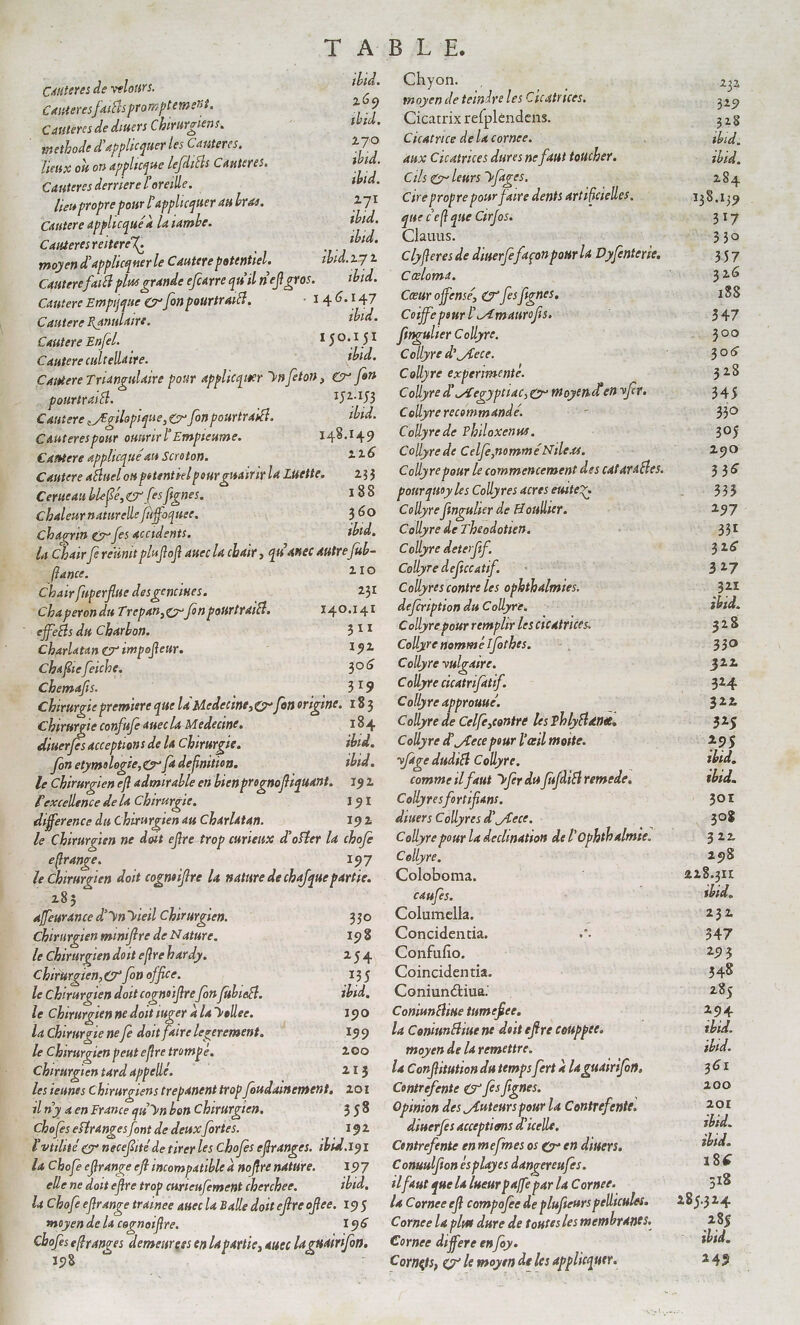 TABLE.
Cauteres de velours. ibid.
Cauteres faicts promptement. 269
Cauteres de diuers Chirurgiens. ibid.
methode d'applicquer les Cauteres. 270
lieux où on applicque lesdicts Cauteres. ibid.
Cauteres derriere l'oreille. ibid.
lieu propre pour l'applicquer au bras. 271
Cautere applicqué à la iambe. ibid.
Cauteres reiterez. ibid.
moyen d'applicquer le Cautere potentiel. ibid.272
Cautere faict plus grande escarre qu'il n'est gros. ibid.
Cautere Empijque & son pourtraict. 146.147
Cautere Ranulaire. ibid.
Cautere Ensel. 150.151
Cautere cultellaire. ibid.
Cautere Triangulaire pour applicquer vn seton, & son
pourtraict. 152.153
Cautere Ægilopique, & son pourtraict. ibid.
Cauteres pour ouurir l'Empieume. 148.149
Cautere applicqué au Scroton. 226
Cautere actuel ou potentiel pour guairir la Luette. 233
Cerueau blessé, & ses signes. 188
Chaleur naturelle suffoquee. 360
Chagrin & ses accidents. ibid.
la Chair se reünit plustost auec la chair, qu'auec autre sub-
stance. 210
Chair superflue des gencines. 231
Chaperon du Trepan, & son pourtraict. 140.141
effects du Charbon. 311
Charlatan & imposteur. 192
Chassie seiche. 306
Chemasis. 319
Chirurgie premiere que la Medecine, & son origine. 183
Chirurgie confuse auec la Medecine. 184
diuerses acceptions de la Chirurgie. ibid.
son etymologie, & sa definition. ibid.
le Chirurgien est admirable en bien prognostiquant. 192
l'excellence de la Chirurgie. 191
difference du Chirurgien au Charlatan. 192
le Chirurgien ne doit estre trop curieux d'oster la chose
estrange. 197
le Chirurgien doit cognoistre la nature de chasque partie.
283
asseurance d'vn vieil Chirurgien. 330
Chirurgien ministre de Nature. 198
le Chirurgien doit estre hardy. 254
Chirurgien, & son office. 135
le Chirurgien doit cognoistre son subiect. ibid.
le Chirurgien ne doit iuger à la vollee. 190
la Chirurgie ne se doit faire legerement. 199
le Chirurgien peut estre trompé. 200
Chirurgien tard appellé. 213
les ieunes Chirurgiens trepanent trop soudainement. 201
il n'y a en France qu'vn bon Chirurgien. 358
Choses estranges sont de deux sortes. 192
l'vtilité & necessité de tirer les Choses estranges. ibid.191
la Chose estrange est incompatible à nostre nature. 197
elle ne doit estre trop curieusement cherchee. ibid.
la Chose estrange trainee auec la Balle doit estre ostee. 195
moyen de la cognoistre. 196
Choses estranges demeurees en la partie, auec la guairison.
198
Chyon. 232
moyen de teindre les Cicatrices. 329
Cicatrix resplendens. 328
Cicatrice de la cornee. ibid.
aux Cicatrices dures ne faut toucher. ibid.
Cils & leurs vsages. 284
Cire propre pour faire dents artificielles. 138.139
que c'est que Cirsos. 317
Clauus. 330
Clysteres de diuerse façon pour la Dysenterie. 357
Cœloma. 326
Cœur offensé, & ses signes. 188
Coiffe pour l'Amaurosis. 347
singulier Collyre. 300
Collyre d'Aece. 306
Collyre experimenté. 328
Collyre d'Aegyptiac, & moyen d'en vser. 345
Collyre recommandé. 330
Collyre de Philoxenus. 305
Collyre de Celse, nommé Nileus. 290
Collyre pour le commencement des cataractes. 336
pourquoy les Collyres acres euitez. 333
Collyre singulier de Houllier. 297
Collyre de Theodotien. 331
Collyre detersif. 326
Collyre desiccatif. 327
Collyres contre les ophthalmies. 321
description du Collyre. ibid.
Collyre pour remplir les cicatrices. 328
Collyre nommé Isothes. 330
Collyre vulgaire. 322
Collyre cicatrisatif. 324
Collyre approuué. 322
Collyre de Celse, contre les Phlyctanes. 325
Collyre d'Aece pour l'œil moite. 295
vsage dudict Collyre. ibid.
comme il faut vser du susdict remede. ibid.
Collyres fortifians. 301
diuers Collyres d'Aece. 308
Collyre pour la declination de l'Ophthalmie. 322
Collyre. 298
Coloboma. 228.311
causes. ibid.
Columella. 232
Concidentia. 347
Confusio. 293
Coincidentia. 348
Coniunctiua. 285
Coniunctiue tumefiee. 294
la Coniunctiue ne doit estre couppee. ibid.
moyen de la remettre. ibid.
la Constitution du temps sert à la guairison. 361
Contrefente & ses signes. 200
Opinion des Auteurs pour la Contrefente. 201
diuerses acceptions d'icelle. ibid.
Contrefente en mesmes os & en diuers. ibid.
Conuulsion és playes dangereuses. 186
il faut que la lueur passe par la Cornee. 318
la Cornee est composee de plusieurs pellicules. 285.324
Cornee la plus dure de toutes les membranes. 285
Cornee differe en soy. ibid.
Cornets, & le moyen de les applicquer. 249